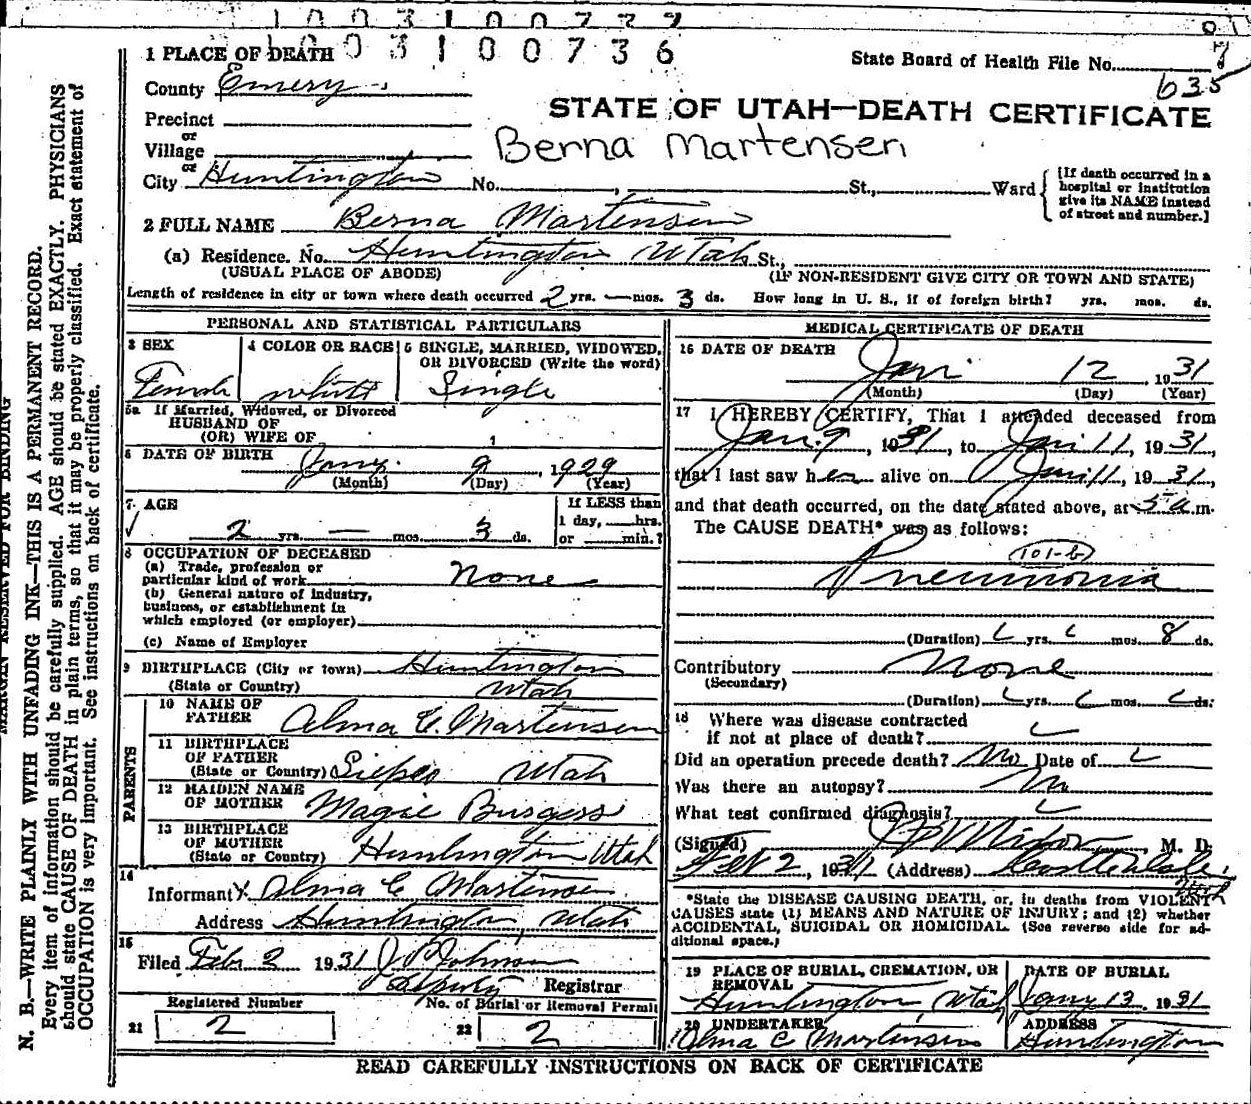 1 0 0 3 1 0 0 7 3 7
1 0 0 3 1 0 0 7 3 6
1 PLACE OF DEATH
State Board of Health File No. 7
635
County Emery
STATE OF UTAH—DEATH CERTIFICATE
Precinct
or
Village
Berna Martensen
or
City Huntington No. , St., Ward
[If death occurred in a
hospital or institution
give its NAME instead
of street and number.]
2 FULL NAME Berna Martensen
(a) Residence. No. Huntington Utah St.,
(USUAL PLACE OF ABODE) (IF NON-RESIDENT GIVE CITY OR TOWN AND STATE)
Length of residence in city or town where death occurred 2 yrs. — mos. 3 ds. How long in U. S., if of foreign birth? yrs. mos. ds.
PERSONAL AND STATISTICAL PARTICULARS
3 SEX
Female
4 COLOR OR RACE
White
5 SINGLE, MARRIED, WIDOWED,
OR DIVORCED (Write the word)
Single
5a If Married, Widowed, or Divorced
HUSBAND OF
(OR) WIFE OF
6 DATE OF BIRTH Jany. 9, 1929
(Month) (Day) (Year)
7 AGE
2 yrs. — mos. 3 ds.
If LESS than
1 day, hrs.
or min.?
8 OCCUPATION OF DECEASED
(a) Trade, profession or
particular kind of work None
(b) General nature of industry,
business, or establishment in
which employed (or employer)
(c) Name of Employer
9 BIRTHPLACE (City or town) Huntington
(State or Country) Utah
PARENTS
10 NAME OF
FATHER Alma C. Martensen
11 BIRTHPLACE
OF FATHER
(State or Country) Utah
12 MAIDEN NAME
OF MOTHER Magie Burgess
13 BIRTHPLACE
OF MOTHER
(State or Country) Huntington Utah
14
Informant X Alma C Martensen
Address Huntington, Utah
15
Filed Feb 2 1931 J P Johnson
Deputy Registrar
Registered Number
21 2
No. of Burial or Removal Permit
22 2
MEDICAL CERTIFICATE OF DEATH
16 DATE OF DEATH
Jan. 12, 1931
(Month) (Day) (Year)
17 I HEREBY CERTIFY, That I attended deceased from
Jan. 9, 1931, to Jan 11, 1931,
that I last saw her alive on Jan 11, 1931,
and that death occurred, on the date stated above, at 5 a.m.
The CAUSE DEATH* was as follows:
101-b
Pneumonia
(Duration) yrs. mos. 8 ds.
Contributory None
(Secondary)
(Duration) yrs. mos. ds.
18 Where was disease contracted
if not at place of death?
Did an operation precede death? No Date of
Was there an autopsy? No
What test confirmed diagnosis?
(Signed) Nixon, M. D.
Feb 2, 1931 (Address) Castle Dale,
Utah
*State the DISEASE CAUSING DEATH, or, in deaths from VIOLENT
CAUSES state (1) MEANS AND NATURE OF INJURY; and (2) whether
ACCIDENTAL, SUICIDAL OR HOMICIDAL. (See reverse side for ad-
ditional space.)
19 PLACE OF BURIAL, CREMATION, OR
REMOVAL
Huntington, Utah
DATE OF BURIAL
Jany 13 1931
20 UNDERTAKER
Alma C Martensen
ADDRESS
Huntington
READ CAREFULLY INSTRUCTIONS ON BACK OF CERTIFICATE
MARGIN RESERVED FOR BINDING
N. B.—WRITE PLAINLY WITH UNFADING INK—THIS IS A PERMANENT RECORD.
Every item of information should be carefully supplied. AGE should be stated EXACTLY. PHYSICIANS
should state CAUSE OF DEATH in plain terms, so that it may be properly classified. Exact statement of
OCCUPATION is very important. See instructions on back of certificate.